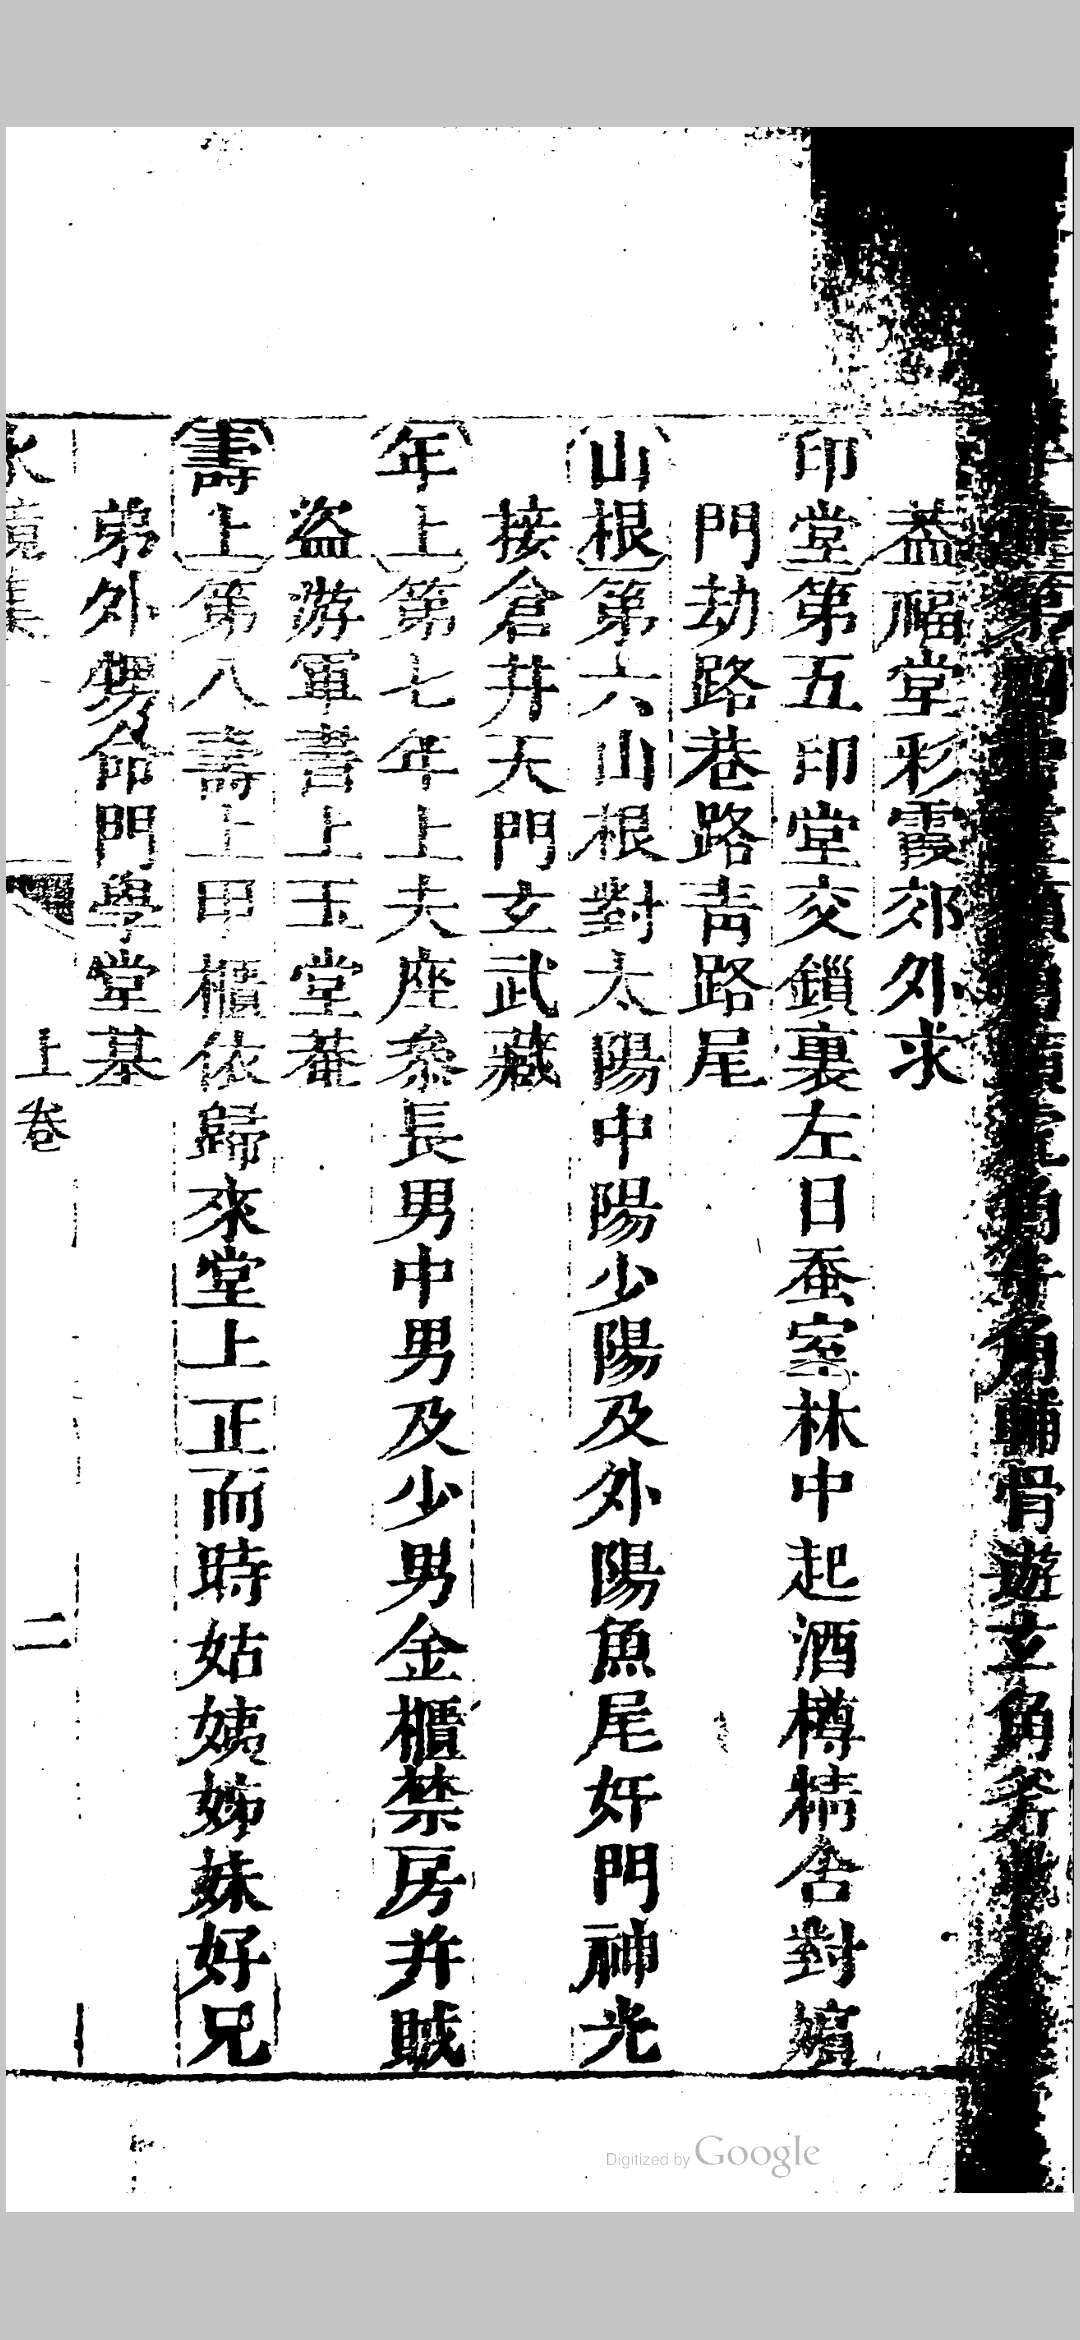 第四
角輔骨遊玄角斧
葢福堂彩霞郊外求
印堂第五印堂交鎖裏左日蚕室林中起酒樽精舎對嬪
門劫路巷路青路尾
山根第六山根對太陽中陽少陽及外陽魚尾奸門神光
接倉井天門玄武藏
年上第七年上夫座叅長男中男及少男金櫃禁房并賊
盜游軍書上玉堂菴
壽上第八壽上甲櫃依歸來堂上正而時姑姨姊妹好兄
弟外甥命門學堂基
水鏡集
上卷
二
Digitized by Google